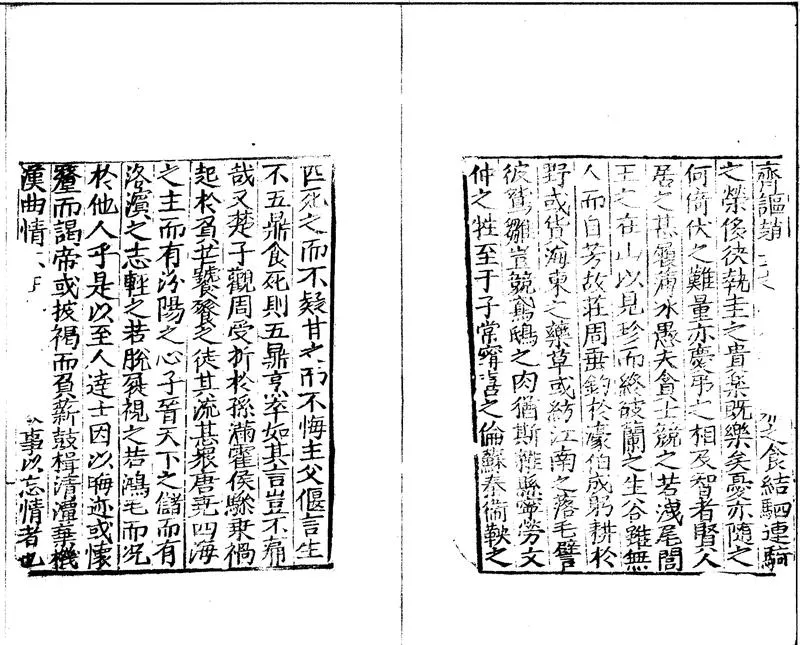 齊謳趙
之食結駟連騎
之榮侈袂執圭之貴樂既樂矣憂亦隨之
何倚伏之難量亦慶弔之相及智者賢人
居之甚履薄冰愚夫貪士競之若洩尾閭
玉之在山以見珍而終破蘭之生谷雖無
人而自芳故莊周垂釣於濠伯成躬耕於
野或貨海東之藥草或紡江南之落毛譬
彼鵷雛豈競鳶鴟之肉猶斯雜縣寧勞文
仲之牲至于子常甯喜之倫蘇秦衛鞅之
匹死之而不疑甘之而不悔主父偃言生
不五鼎食死則五鼎烹卒如其言豈不痛
哉又楚子觀周受折於孫滿霍侯驂乘禍
起於負芒饕餮之徒其流甚眾唐堯四海
之主而有汾陽之心子晉天下之儲而有
洛濱之志輕之若脫屣視之若鴻毛而況
於他人乎是以至人達士因以晦迹或懷
釐而謁帝或披褐而負薪鼓楫清潭棄機
漢曲情
事以忘情者也